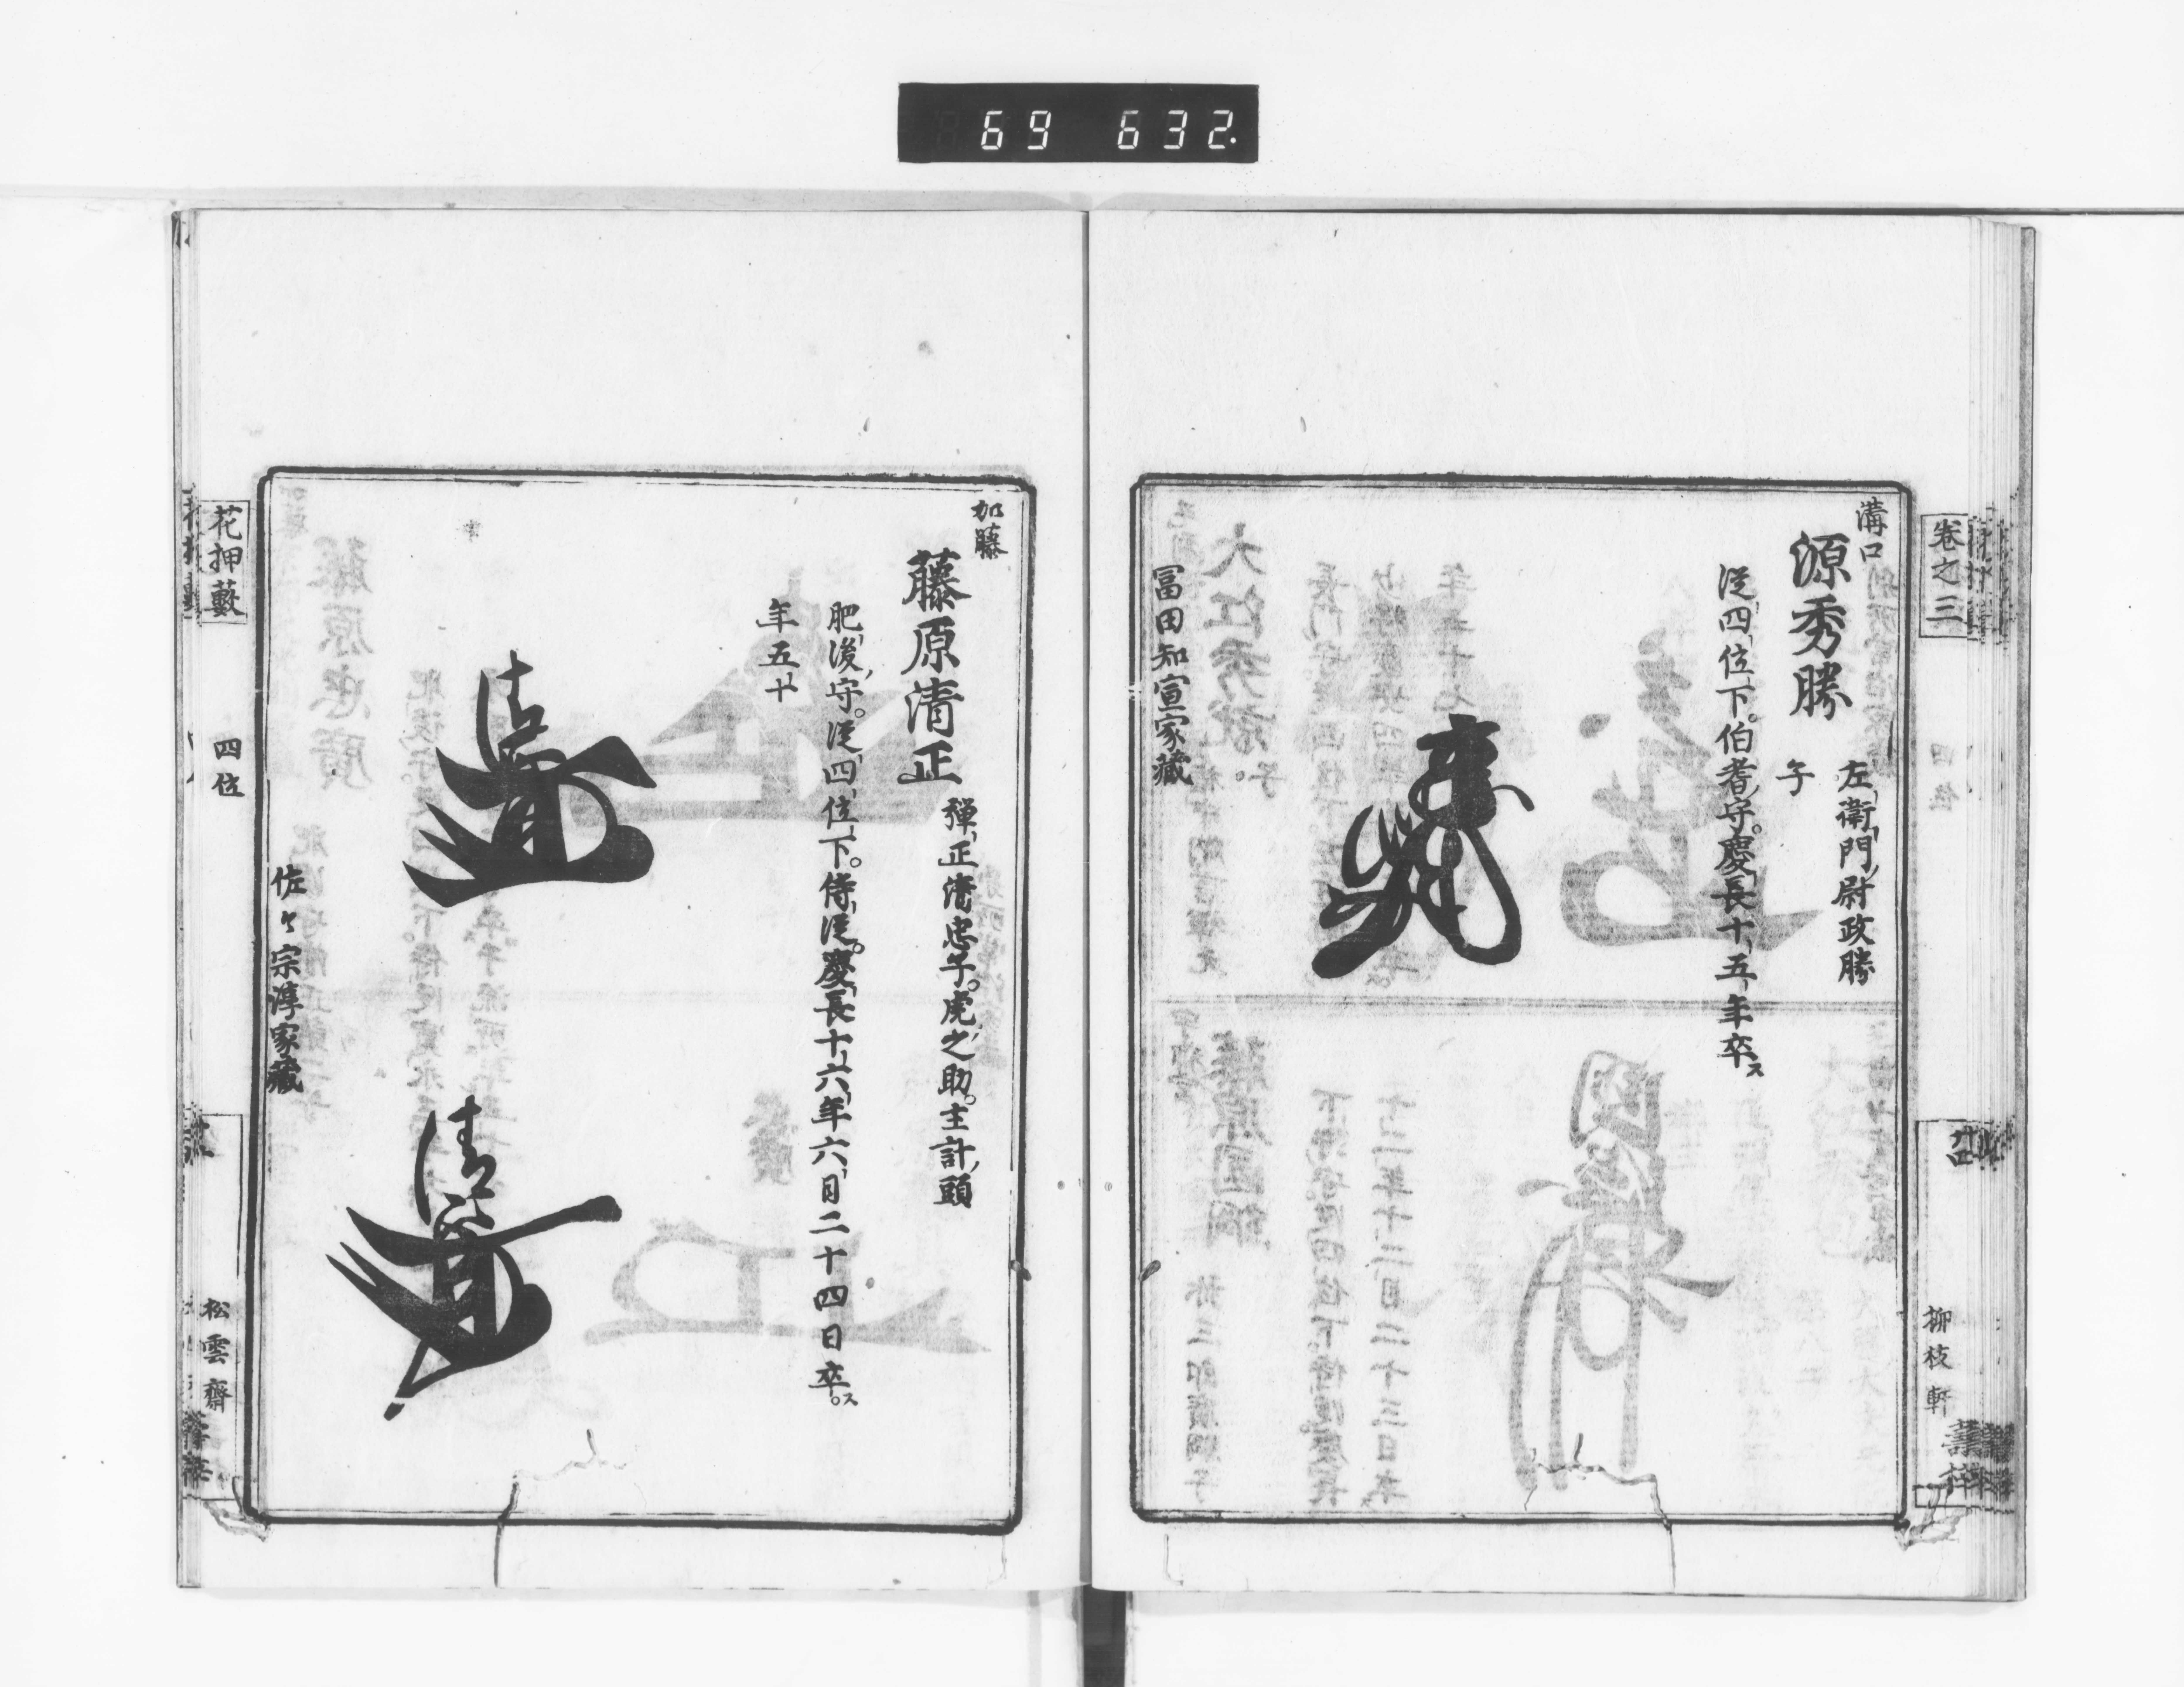 69 632.
卷之三
廿四
柳枝軒
溝口
源秀勝
左衛門尉政勝
子
從四位下。伯耆守。慶長十五年卒ス
冨田知宣家藏
加藤
藤原清正
彈正清忠子。虎之助。主計頭
肥後守。從四位下。侍從。慶長十六年六月二十四日卒。ス
年五十
佐々宗淳家藏
花押藪
四位
松雲齋